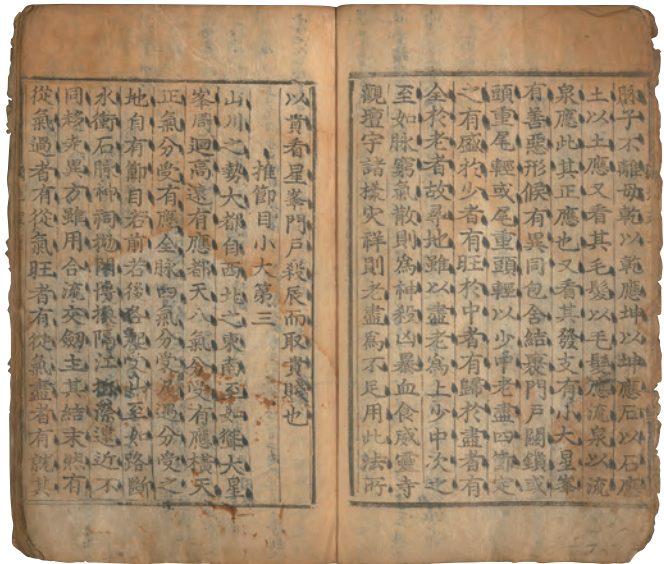 脉子不離母乾以乾應坤以坤應石以石應
土以土應又看其毛髮以毛髮應流泉以流
泉應此其正應也又看其發支有小大星峯
有善惡形候有異同包含結裹門戶關鎖或
頭重尾輕或尾重頭輕以少中老盡四節定
之有盛於少者有旺於中者有歸於盡者有
全於老者故尋地雖以盡老爲上少中次之
至如脉窮氣散則爲神殺凶暴血食威靈寺
觀壇宇諸樣灾祥則老盡爲不足用此法所
以貴看星峯門戶殺辰而取貴賤也
推節目小大第三
山川之勢大都自西北之東南至如權大星
峯周迴高遠有應都天八氣分受有應橫天
正氣分受有應全脉四氣分受及過分受之
地自有節目若前若後各
至如路斷
水衡石脉神祠拋閑隈摟隔江
際遠近不
同移步異方雖用合流交劔主其結末然有
從氣過者有從氣旺者有從氣盡者有就其